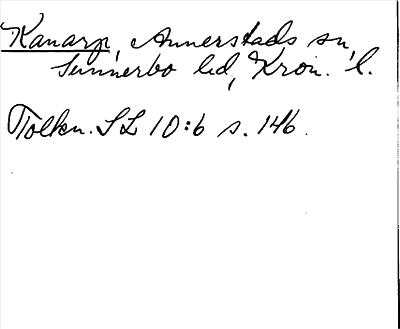 Kanarp, Annerstads sn,
Sunnerbo hd, Kron. l.
Tolkn. SL 10:6 s. 146.